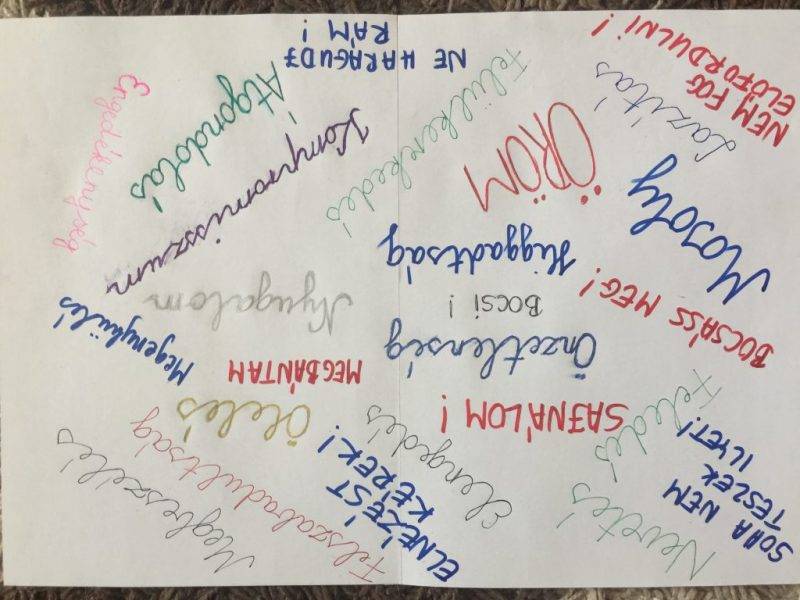 SOHA NEM
TESZEK
ILYET!
Nevetés
Feledés
ELNÉZÉST
KÉREK!
Elengedés
Felszabadultság
Megbeszélés
SAJNÁLOM!
Ölelés
BOCSÁSS MEG!
Önzetlenség
MEGBÁNTAM
Megenyhülés
BOCSI!
Nyugalom
Mosoly
Higgadtság
Kompromisszum
ÖRÖM
Felülkerekedés
Átgondolás
Engedékenység
Lazítás
NEM FOG
ELŐFORDULNI!
NE HARAGUDJ
RÁM!